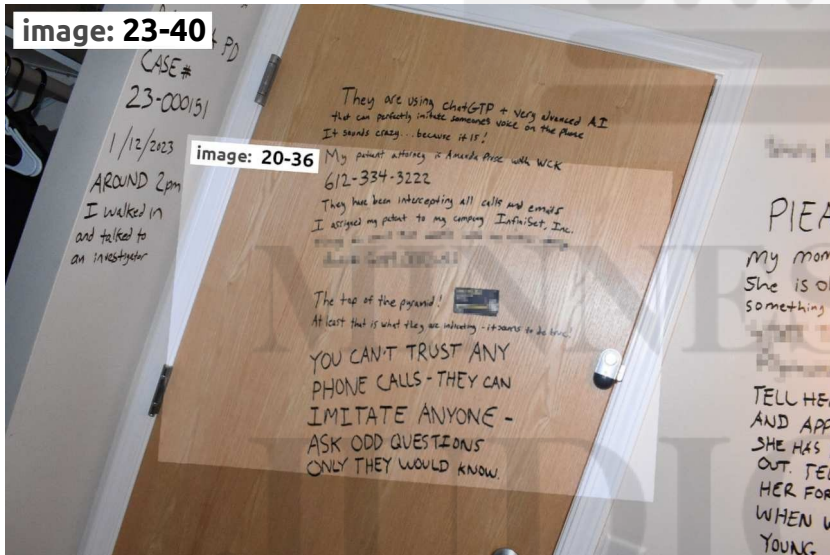 image: 23-40
PD
CASE #
23-000151
1/12/2023
AROUND 2pm
I walked in
and talked to
an investigator
They are using ChatGTP + very advanced AI
that can perfectly imitate someones voice on the phone
It sounds crazy... because it is!
image: 20-36
My patent attorney is Amanda Prose with WCK
612-334-3222
They have been intercepting all calls and emails
I assigned my patent to my company InfiniSet, Inc.
The top of the pyramid!
At least that is what they are indicating - it seems to be true!
YOU CAN'T TRUST ANY
PHONE CALLS - THEY CAN
IMITATE ANYONE -
ASK ODD QUESTIONS
ONLY THEY WOULD KNOW.
my mom
She is
something
TELL HER
AND
SHE HAS
OUT.
HER
WHEN
YOUNG
MINNES